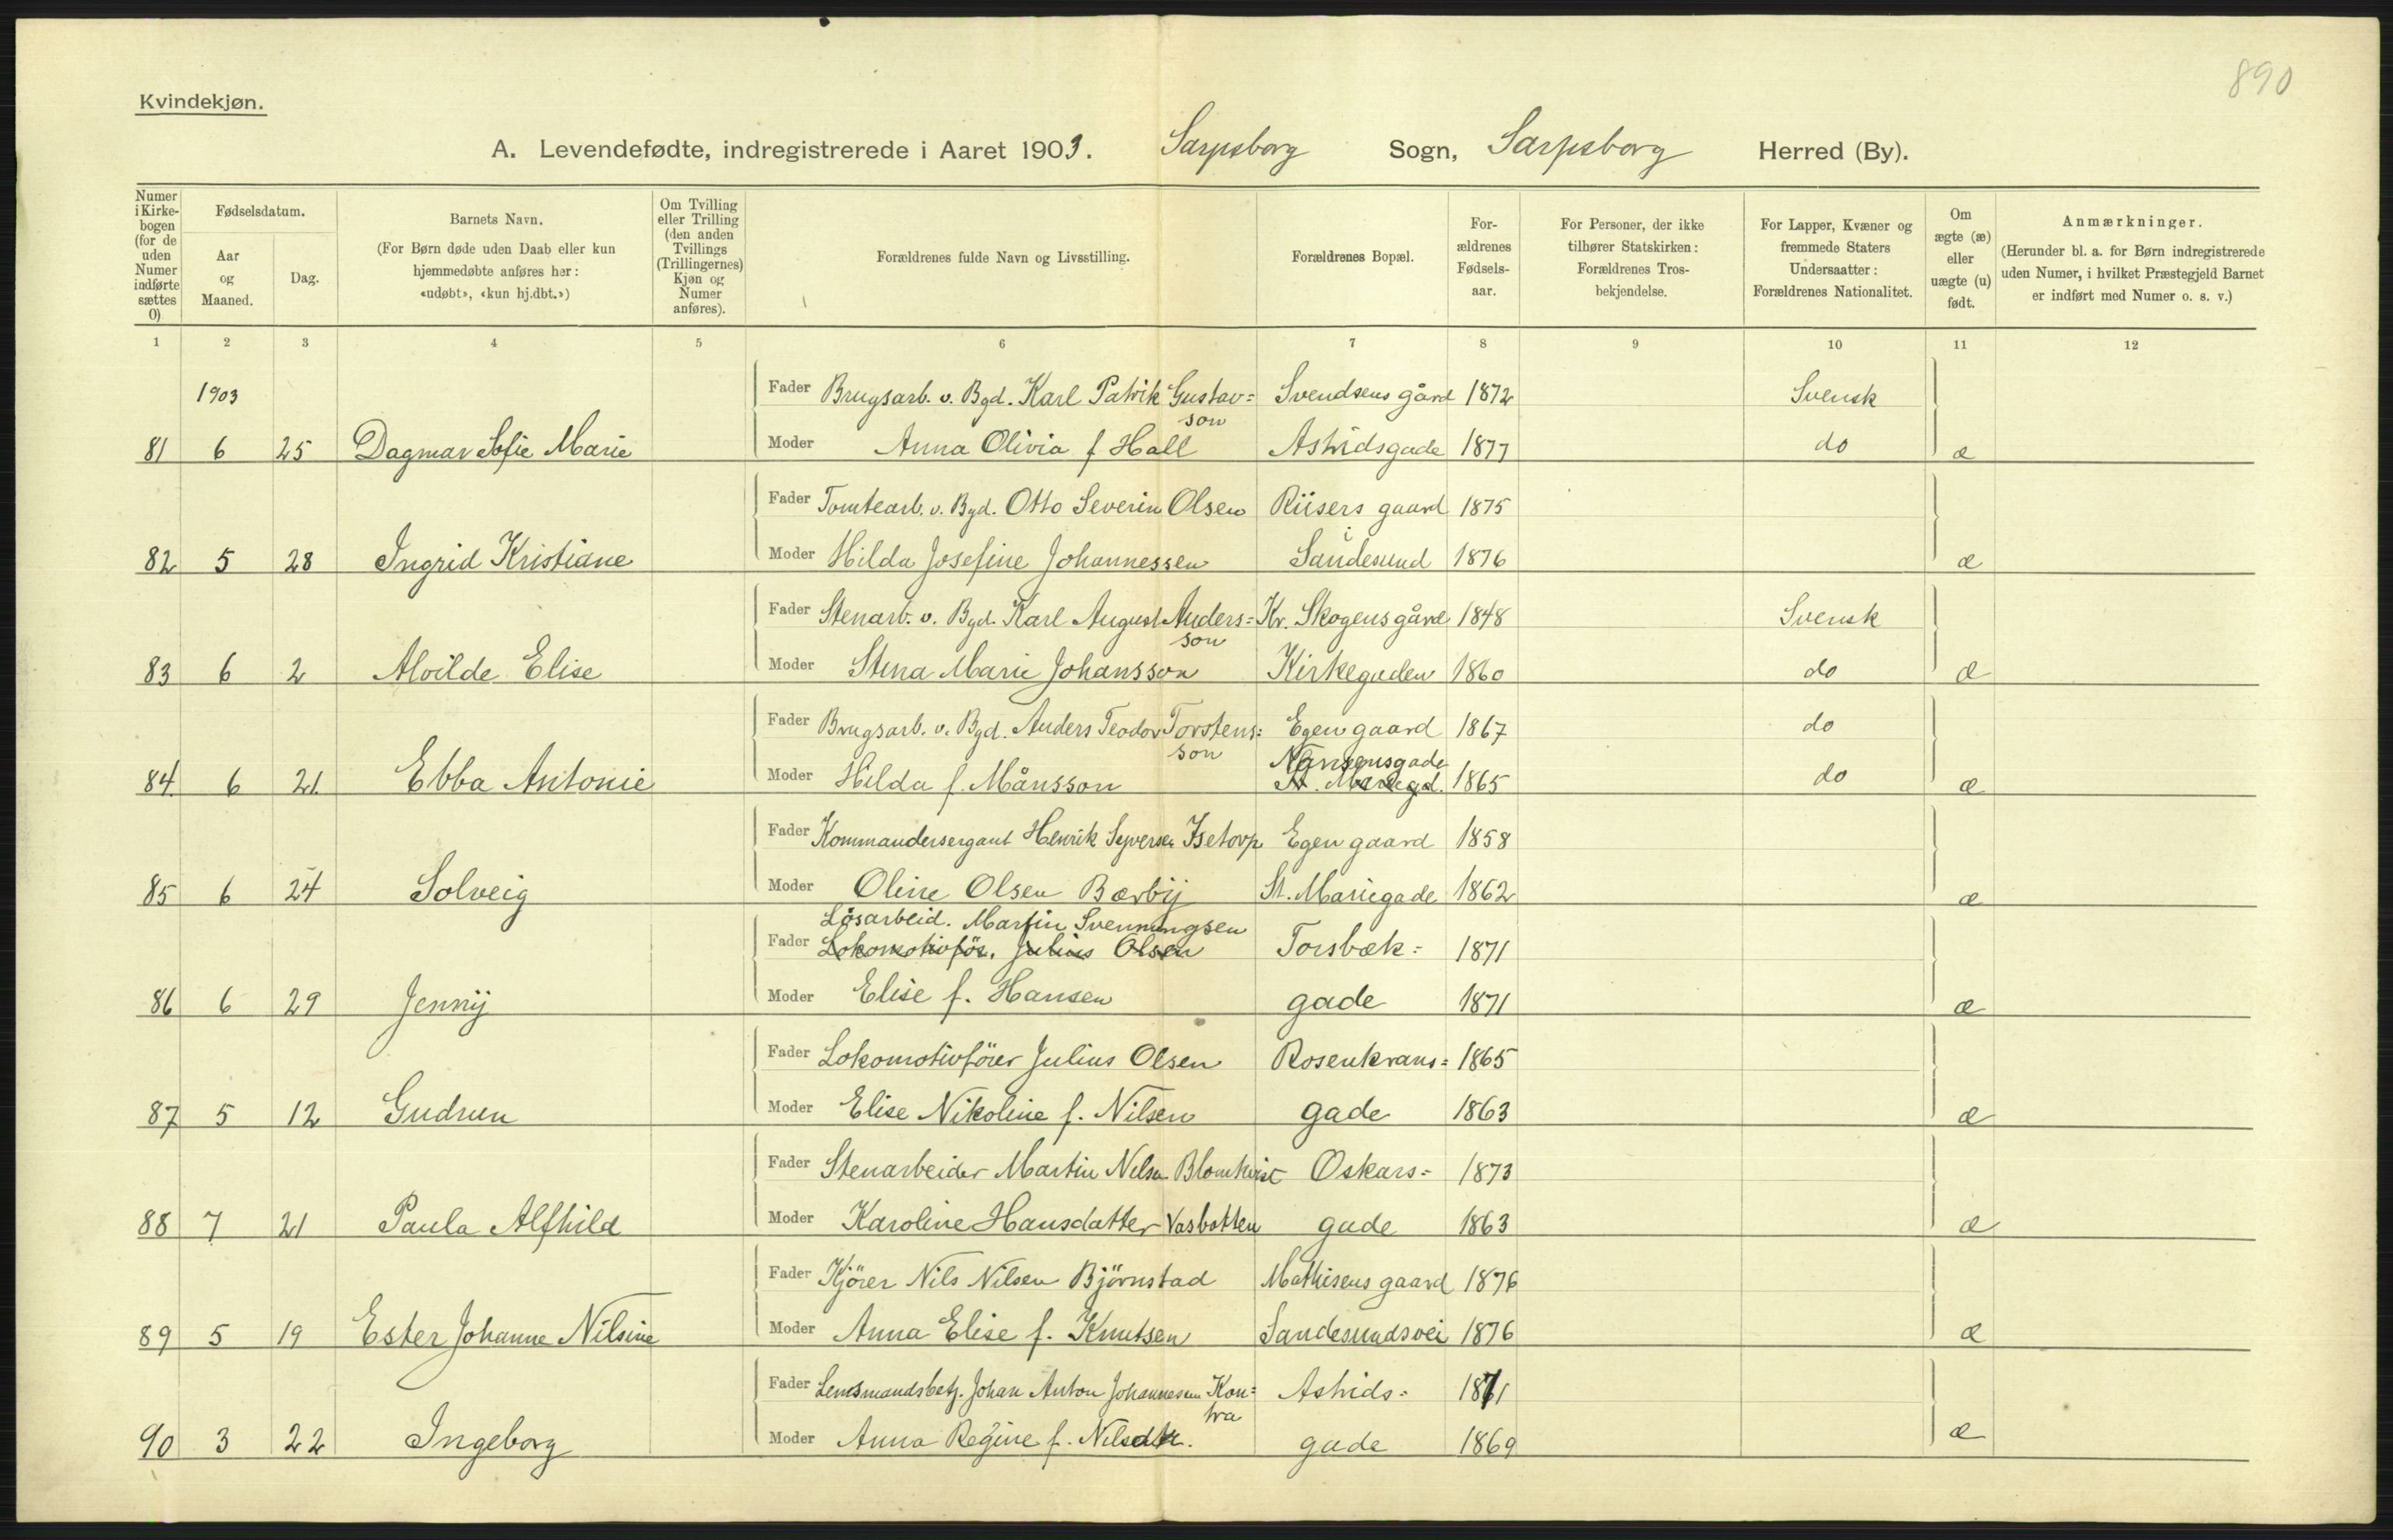 890
Kvindekjøn.
A. Levendefødte, indregistrerede i Aaret 1903. Sarpsborg Sogn, Sarpsborg Herred (By).
Numer i Kirkebogen (for de uden Numer indførte sættes 0)
Fødselsdatum.
Aar og Maaned.
Dag.
Barnets Navn.
(For Børn døde uden Daab eller kun hjemmedøbte anføres her: «udøbt», «kun hj.dbt.»)
Om Tvilling eller Trilling (den anden Tvillings (Trillingernes) Kjøn og Numer anføres).
Forældrenes fulde Navn og Livsstilling.
Forældrenes Bopæl.
Forældrenes Fødselsaar.
For Personer, der ikke tilhører Statskirken: Forældrenes Trosbekjendelse.
For Lapper, Kvæner og fremmede Staters Undersaatter: Forældrenes Nationalitet.
Om ægte (æ) eller uægte (u) født.
Anmærkninger.
(Herunder bl. a. for Børn indregistrerede uden Numer, i hvilket Præstegjeld Barnet er indført med Numer o. s. v.)
1 2 3 4 5 6 7 8 9 10 11 12
1903 Fader Brugsarb. v. Bgd. Karl Patrik Gustav= Svendsens gård 1872 Svensk
son
81 6 25 Dagmar Sofie Marie Moder Anna Olivia f Hall Astridsgade 1877 do æ
Fader Tomtearb. v. Bgd. Otto Severin Olsen Riisers gaard 1875
82 5 28 Ingrid Kristiane Moder Hilda Josefine Johannessen Sandesund 1876 æ
Fader Stenarb. v. Bgd. Karl August Anders= Kr. Skogens gård 1848 Svensk
son
83 6 2 Alvilde Elise Moder Stina Marie Johansson Kirkegaden 1860 do æ
Fader Brugsarb. v. Bgd. Anders Teodor Torstens= Egen gaard 1867 do
son Nansensgade
84 6 21. Ebba Antonie Moder Hilda f. Månsson St. Mariegd. 1865 do æ
Fader Kommandersergant Henrik Syversen Isetorp Egen gaard 1858
85 6 24 Solveig Moder Oline Olsen Bærby St. Mariegade 1862 æ
Lösarbeid. Martin Svenningsen
Fader Lokomotivför. Julius Olsen Torsbæk= 1871
86 6 29 Jenny Moder Elise f. Hansen gade 1871 æ
Fader Lokomotivförer Julius Olsen Rosenkrans= 1865
87 5 12 Gudrun Moder Elise Nikoline f. Nilsen gade 1863 æ
Fader Stenarbeider Martin Nilsen Blomkvist Oskars= 1873
88 7 21 Paula Alfhild Moder Karoline Hansdatter Vasbotten gade 1863 æ
Fader Kjörer Nils Nilsen Björnstad Mathisens gaard 1876
89 5 19 Ester Johanne Nilsine Moder Anna Elise f. Knutsen Sandesundsvei 1876 æ
Fader Lensmandsbetj. Johan Anton Johannesen Kon= Astrids= 1871
tra
90 3 22 Ingeborg Moder Anna Regine f. Nilsdtr. gade 1869 æ